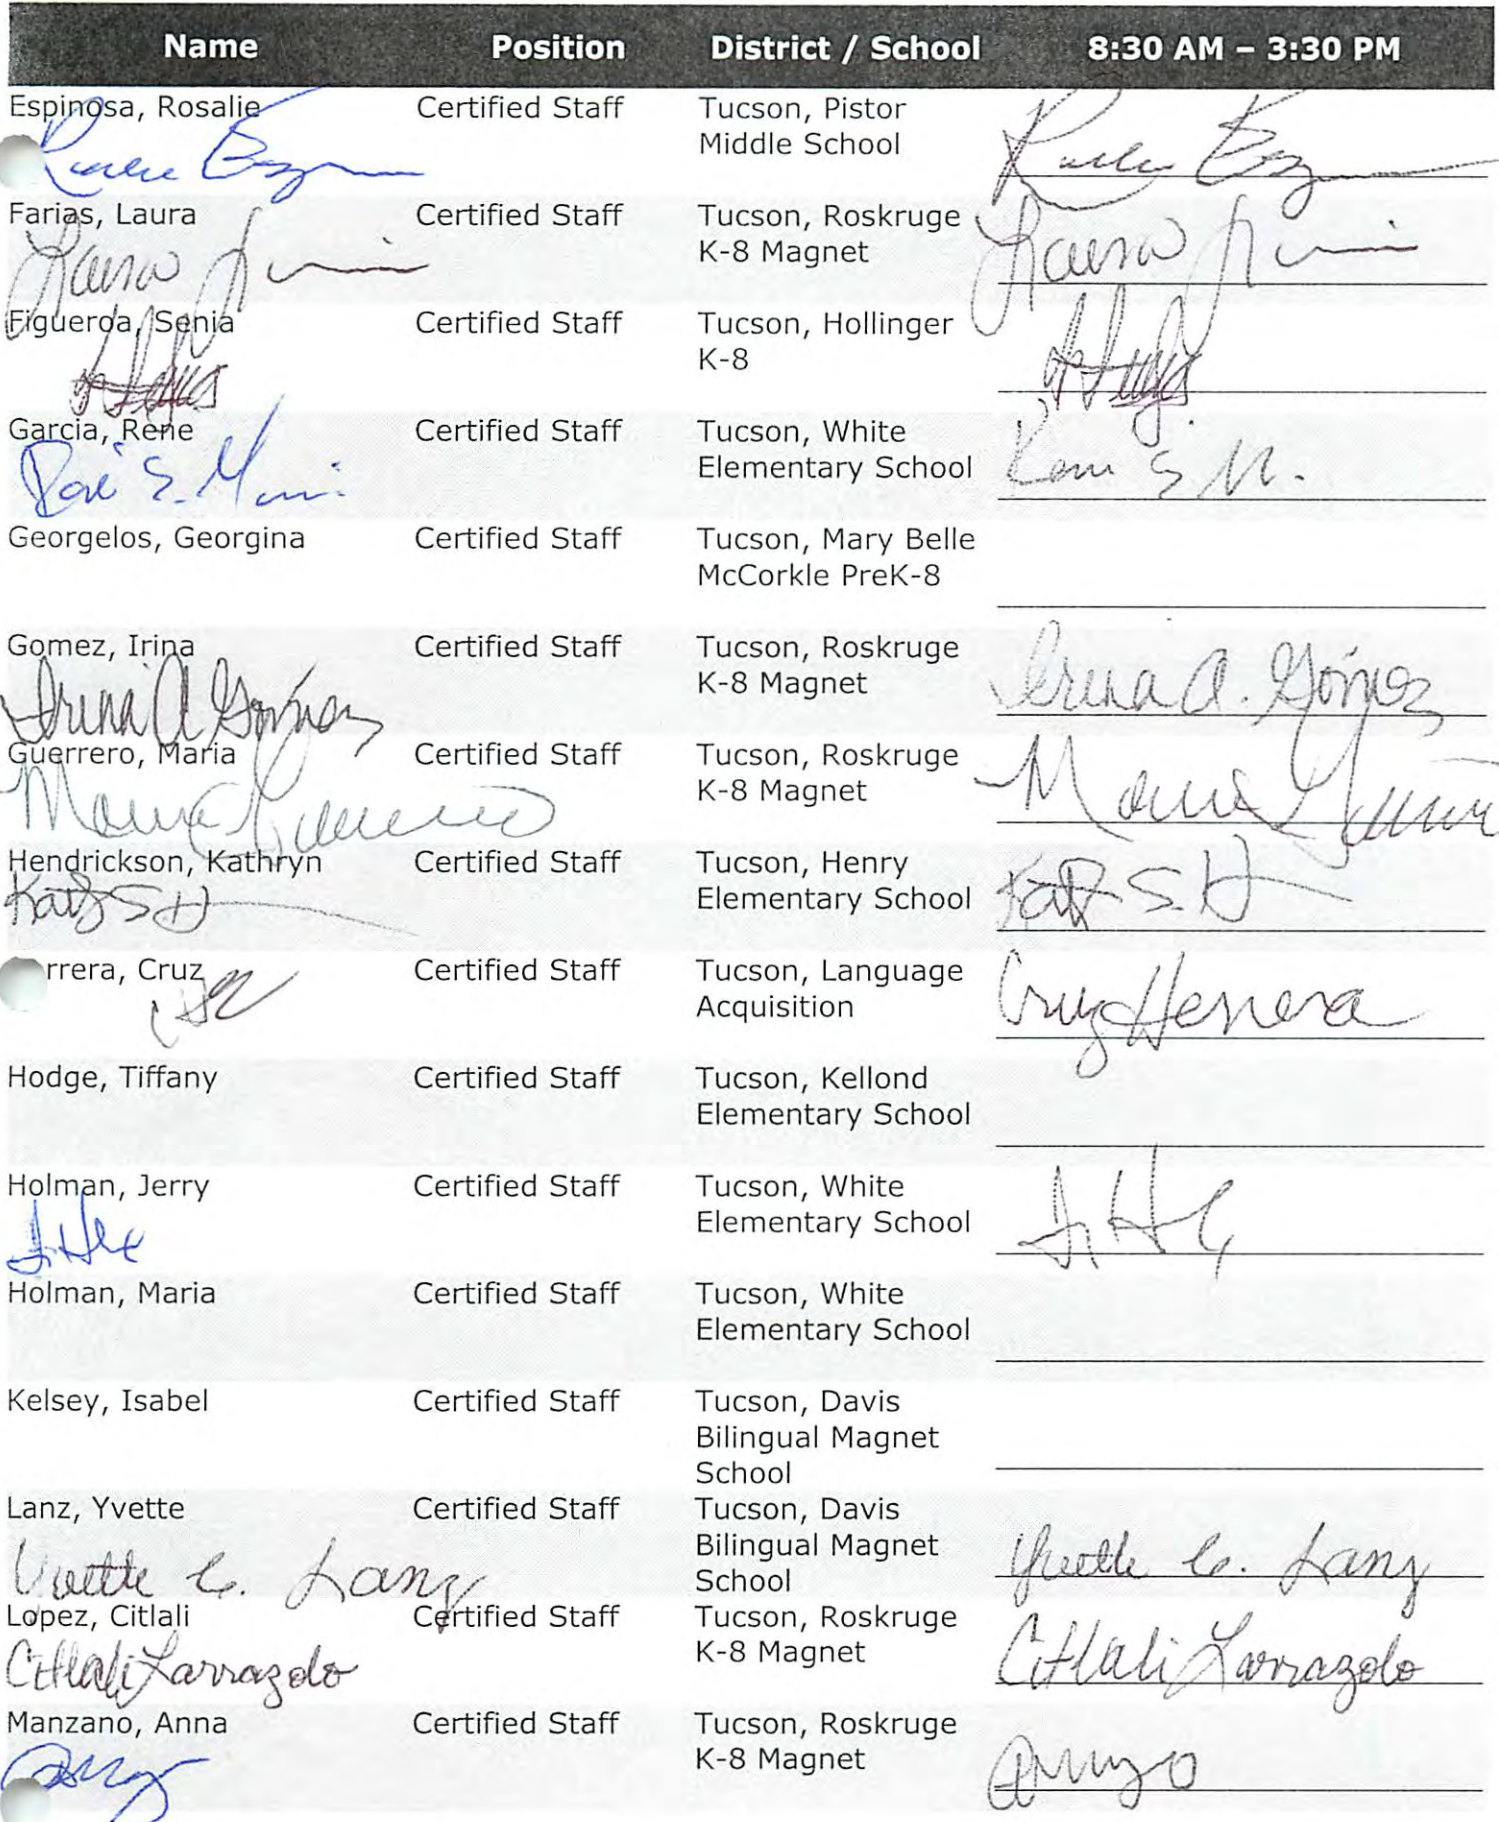 Name Position District / School 8:30 AM – 3:30 PM
Espinosa, Rosalie Certified Staff Tucson, Pistor
Middle School
Farias, Laura Certified Staff Tucson, Roskruge
K-8 Magnet
Laura Laura
Figueroa, Senia Certified Staff Tucson, Hollinger
K-8
Garcia, Rene Certified Staff Tucson, White
Elementary School
Georgelos, Georgina Certified Staff Tucson, Mary Belle
McCorkle PreK-8
Gomez, Irina Certified Staff Tucson, Roskruge
K-8 Magnet
Irina A Gomez Irina A. Gómez
Guerrero, Maria Certified Staff Tucson, Roskruge
K-8 Magnet
Maria Guerrero Maria
Hendrickson, Kathryn Certified Staff Tucson, Henry
Elementary School
Kathy S H S. H
rrera, Cruz Certified Staff Tucson, Language
Acquisition
Cruz Herrera
Hodge, Tiffany Certified Staff Tucson, Kellond
Elementary School
Holman, Jerry Certified Staff Tucson, White
Elementary School
Holman, Maria Certified Staff Tucson, White
Elementary School
Kelsey, Isabel Certified Staff Tucson, Davis
Bilingual Magnet
School
Lanz, Yvette Certified Staff Tucson, Davis
Bilingual Magnet
School
Yvette C. Lanz Yvette C. Lanz
Lopez, Citlali Certified Staff Tucson, Roskruge
K-8 Magnet
Citlali Larrazolo Citlali Larrazolo
Manzano, Anna Certified Staff Tucson, Roskruge
K-8 Magnet